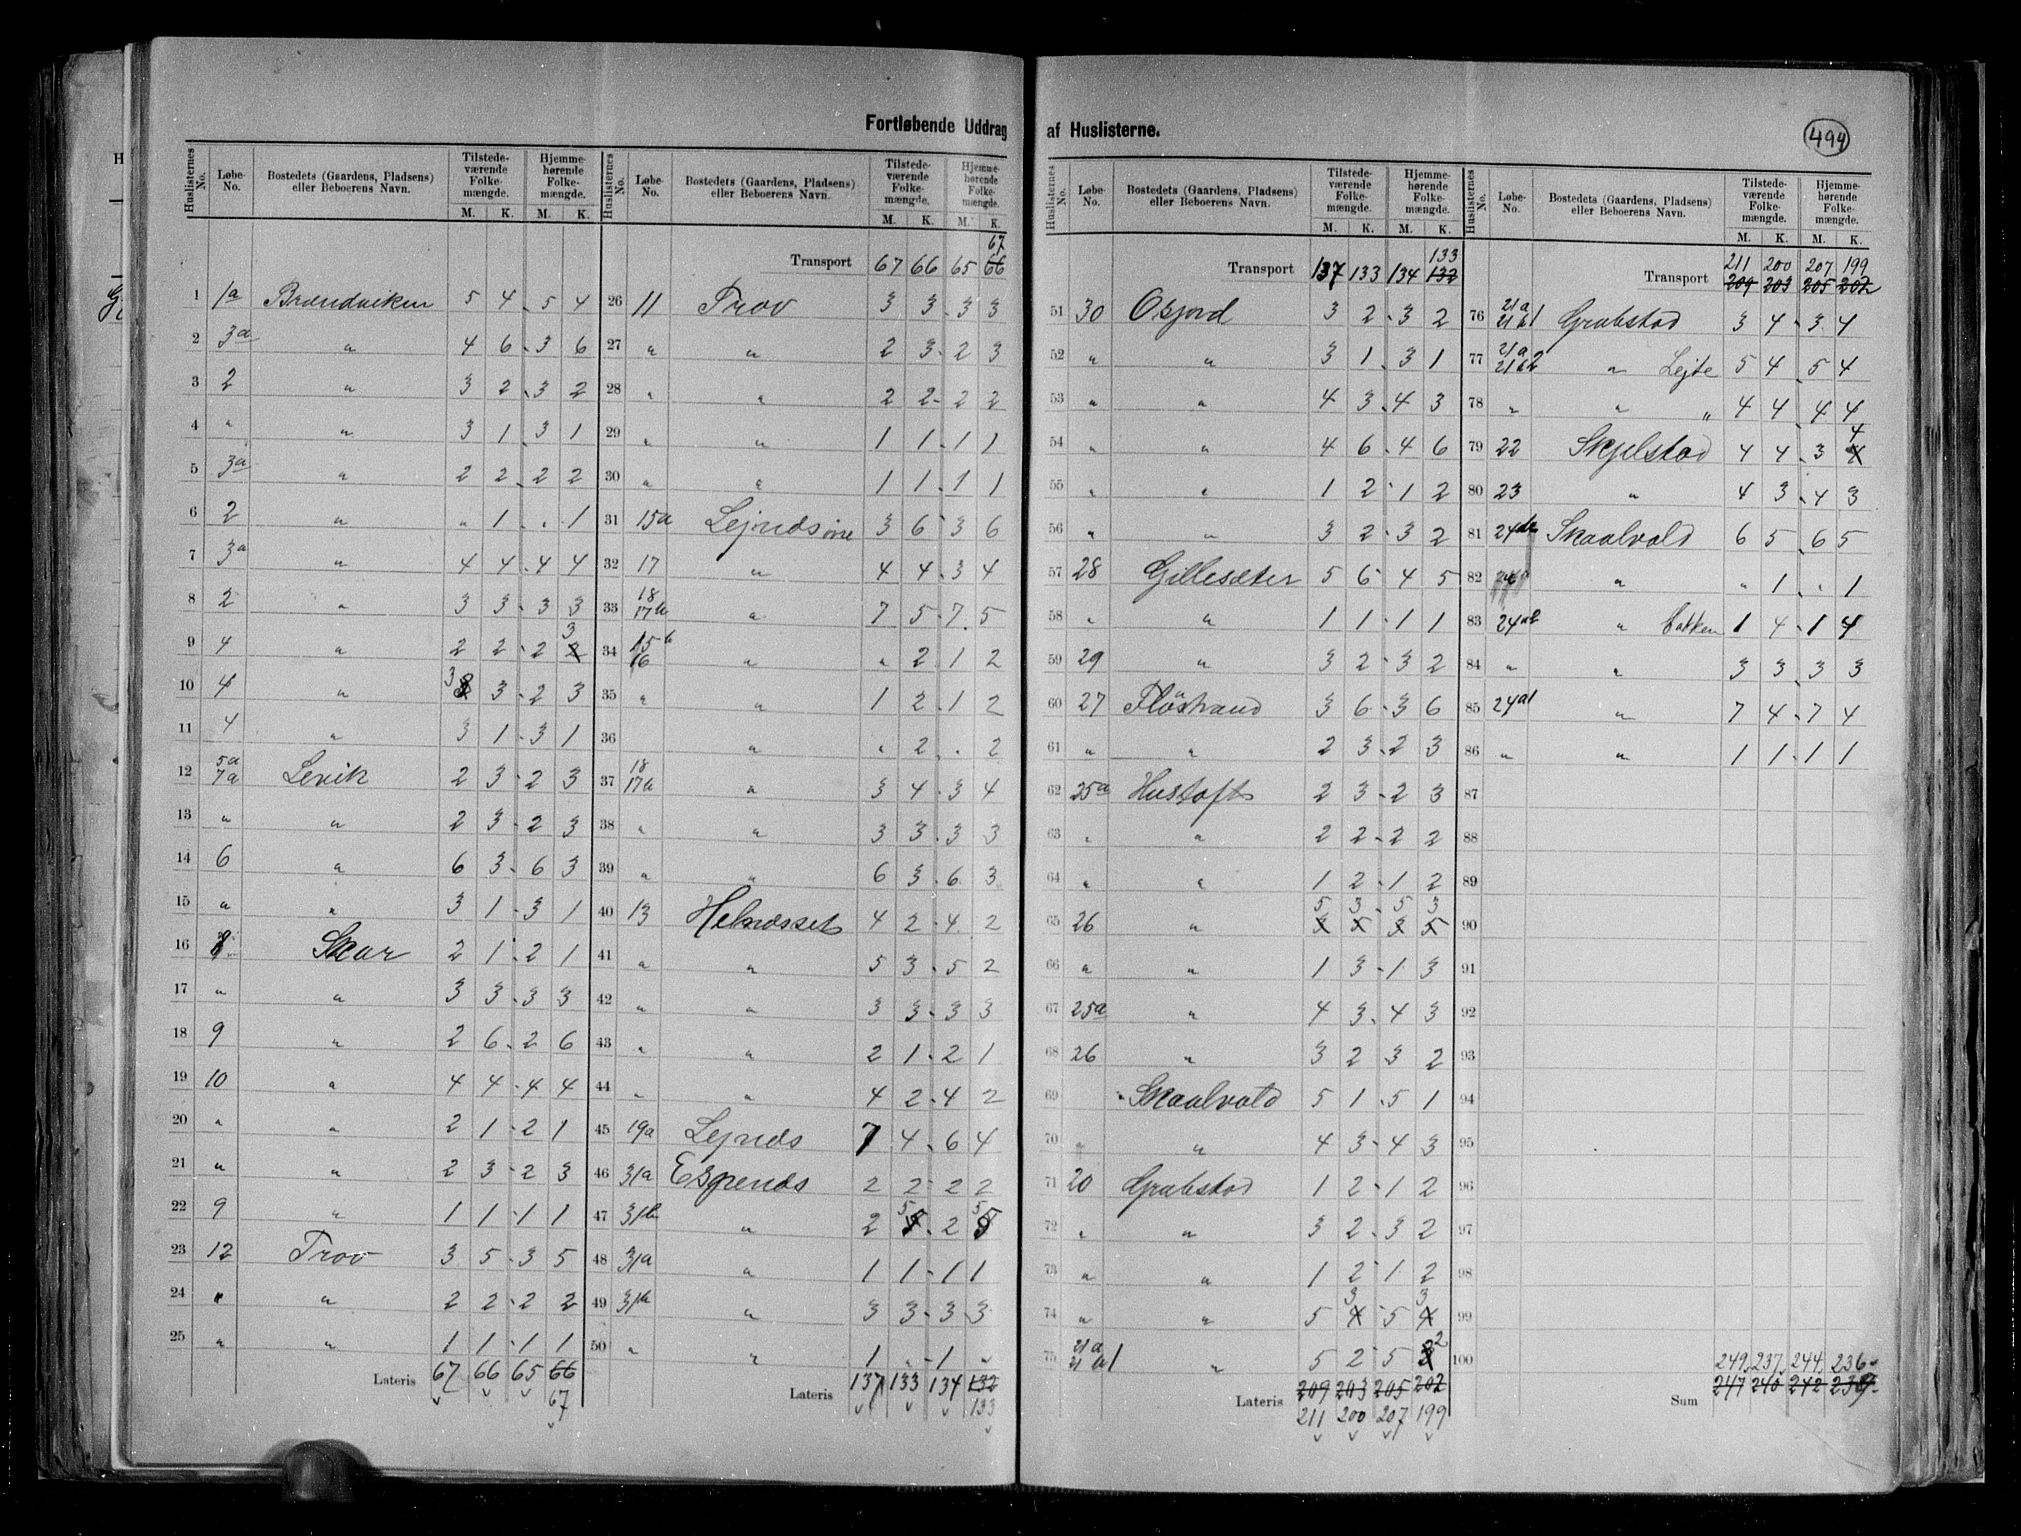 Fortløbende Uddrag af Huslisterne.
494
Huslisternes No. | Løbe-No. | Bostedets (Gaardens, Pladsens) eller Beboerens Navn. | Tilstedeværende Folkemængde. M. K. | Hjemmehørende Folkemængde. M. K.
1 1a Brændviken 5 4 - 5 4
2 3a " 4 6 - 3 6
3 2 " 3 2 - 3 2
4 " " 3 1 - 3 1
5 3a " 2 2 - 2 2
6 2 " " 1 - " 1
7 3a " 4 4 - 4 4
8 2 " 3 3 - 3 3
9 4 " 2 2 - 2 3
10 4 " 3 3 - 2 3
11 4 " 3 1 - 3 1
12 5a 7a Levik 2 3 - 2 3
13 " " 2 3 - 2 3
14 6 " 6 3 - 6 3
15 " " 3 1 - 3 1
16 8 Skar 2 1 - 2 1
17 " " 3 3 - 3 3
18 9 " 2 6 - 2 6
19 10 " 4 4 - 4 4
20 " " 2 1 - 2 1
21 " " 2 3 - 2 3
22 9 " 1 1 - 1 1
23 12 Trov 3 5 - 3 5
24 " " 2 2 - 2 2
25 " " 1 1 - 1 1
Lateris 67 66 65 66
67
Huslisternes No. | Løbe-No. | Bostedets (Gaardens, Pladsens) eller Beboerens Navn. | Tilstedeværende Folkemængde. M. K. | Hjemmehørende Folkemængde. M. K.
67
Transport 67 66 65 66
26 11 Trov 3 3 - 3 3
27 " " 2 3 - 2 3
28 " " 2 2 - 2 2
29 " " 1 1 - 1 1
30 " " 1 1 - 1 1
31 15a 3 6 - 3 6
32 17 " 4 4 - 3 4
33 18 17b " 7 5 - 7 5
34 15b 16 " " 2 1 2
35 " " 1 2 - 1 2
36 " " 2 - " 2
37 18 17b " 3 4 - 3 4
38 " " 3 3 - 3 3
39 " " 6 3 - 6 3
40 13 Helnæsset 4 2 - 4 2
41 " " 5 3 - 5 2
42 " " 3 3 - 3 3
43 " " 2 1 - 2 1
44 " " 4 2 - 4 2
45 19a Lejnds 7 4 - 6 4
46 31a Espenæs 2 2 - 2 2
47 31b " 2 5 - 2 5
48 31a " 1 1 - 1 1
49 31b " 3 3 - 3 3
50 " " 1 " - 1 "
Lateris 137 133 134 132
133
Huslisternes No. | Løbe-No. | Bostedets (Gaardens, Pladsens) eller Beboerens Navn. | Tilstedeværende Folkemængde. M. K. | Hjemmehørende Folkemængde. M. K.
133
Transport 137 133 134 132
51 30 Osjord 3 2 - 3 2
52 " " 3 1 - 3 1
53 " " 4 3 - 4 3
54 " " 4 6 - 4 6
55 " " 1 2 - 1 2
56 " " 3 2 - 3 2
57 28 Gillesæter 5 6 4 5
58 " " 1 1 - 1 1
59 29 " 3 2 - 3 2
60 27 Flostrand 3 6 - 3 6
61 " " 2 3 - 2 3
62 25a Hustoft 2 3 - 2 3
63 " " 2 2 - 2 2
64 " " 1 2 - 1 2
5 3 - 5 3
65 26 " 3 5 3 5
66 " " 1 3 - 1 3
67 25a " 4 3 - 4 3
68 26 " 3 2 3 2
69 Skaalvold 5 1 - 5 1
70 " " 4 3 - 4 3
71 20 Grubstad 1 2 - 1 2
72 " " 3 2 - 3 2
73 " " 1 2 - 1 2
3 3
74 " " 5 4 - 5 4
75 21a 21b1 " 5 2 5 2
Lateris 209 203 205 202
211 200 207 199
Huslisternes No. | Løbe-No. | Bostedets (Gaardens, Pladsens) eller Beboerens Navn. | Tilstedeværende Folkemængde. M. K. | Hjemmehørende Folkemængde. M. K.
211 200 207 199
Transport 209 203 205 202
76 21a 21b1 Grubstad 3 4 - 3 4
77 21a 21b2 " Lejte 5 4 - 5 4
78 " " " 4 4 - 4 4
79 22 Skjelstad 4 4 - 3 4
80 23 " 4 3 - 4 3
81 Skaalvold 6 5 - 6 5
82 " " 1 " 1
83 " bakken 1 4 - 1 4
84 " " 3 3 3 3
85 24a1 " 7 4 - 7 4
86 " " 1 1 - 1 1
87
88
89
90
91
92
93
94
95
96
97
98
99
100
249 237 244 236
Sum 247 240 242 239